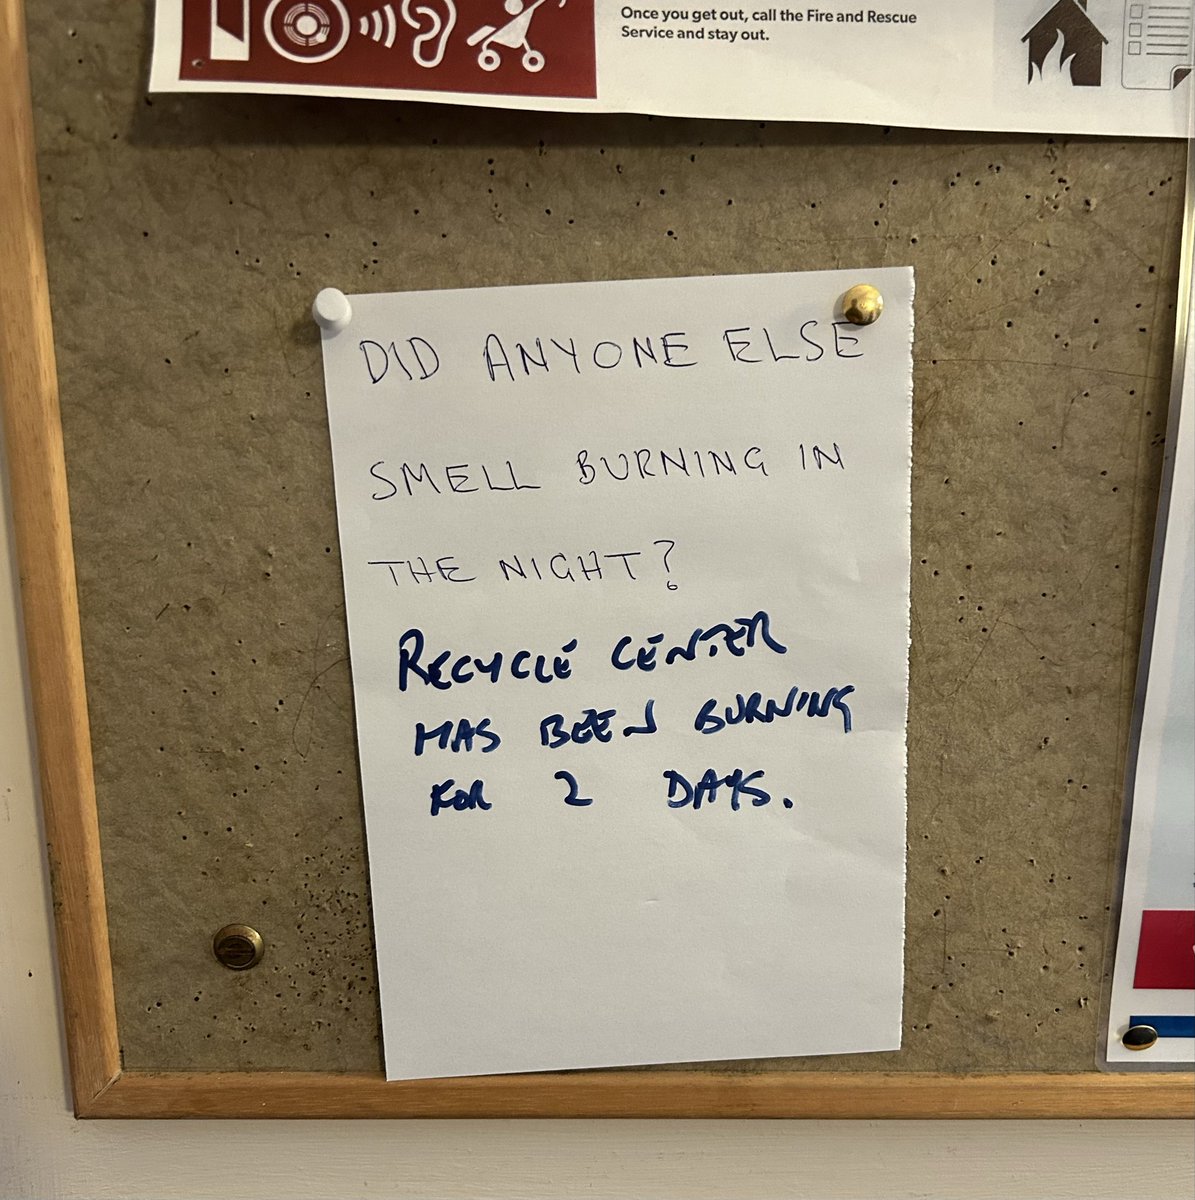 Once you get out, call the Fire and Rescue
Service and stay out.
DID ANYONE ELSE
SMELL BURNING IN
THE NIGHT?
RECYCLE CENTER
HAS BEEN BURNING
FOR 2 DAYS.